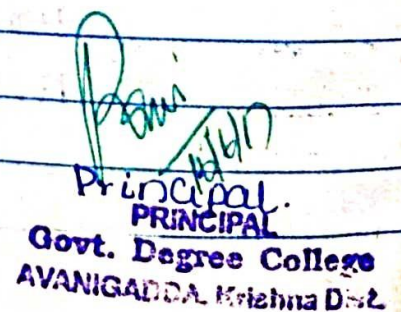 Principal.
PRINCIPAL
Govt. Degree College
AVANIGADDA, Krishna Dist.